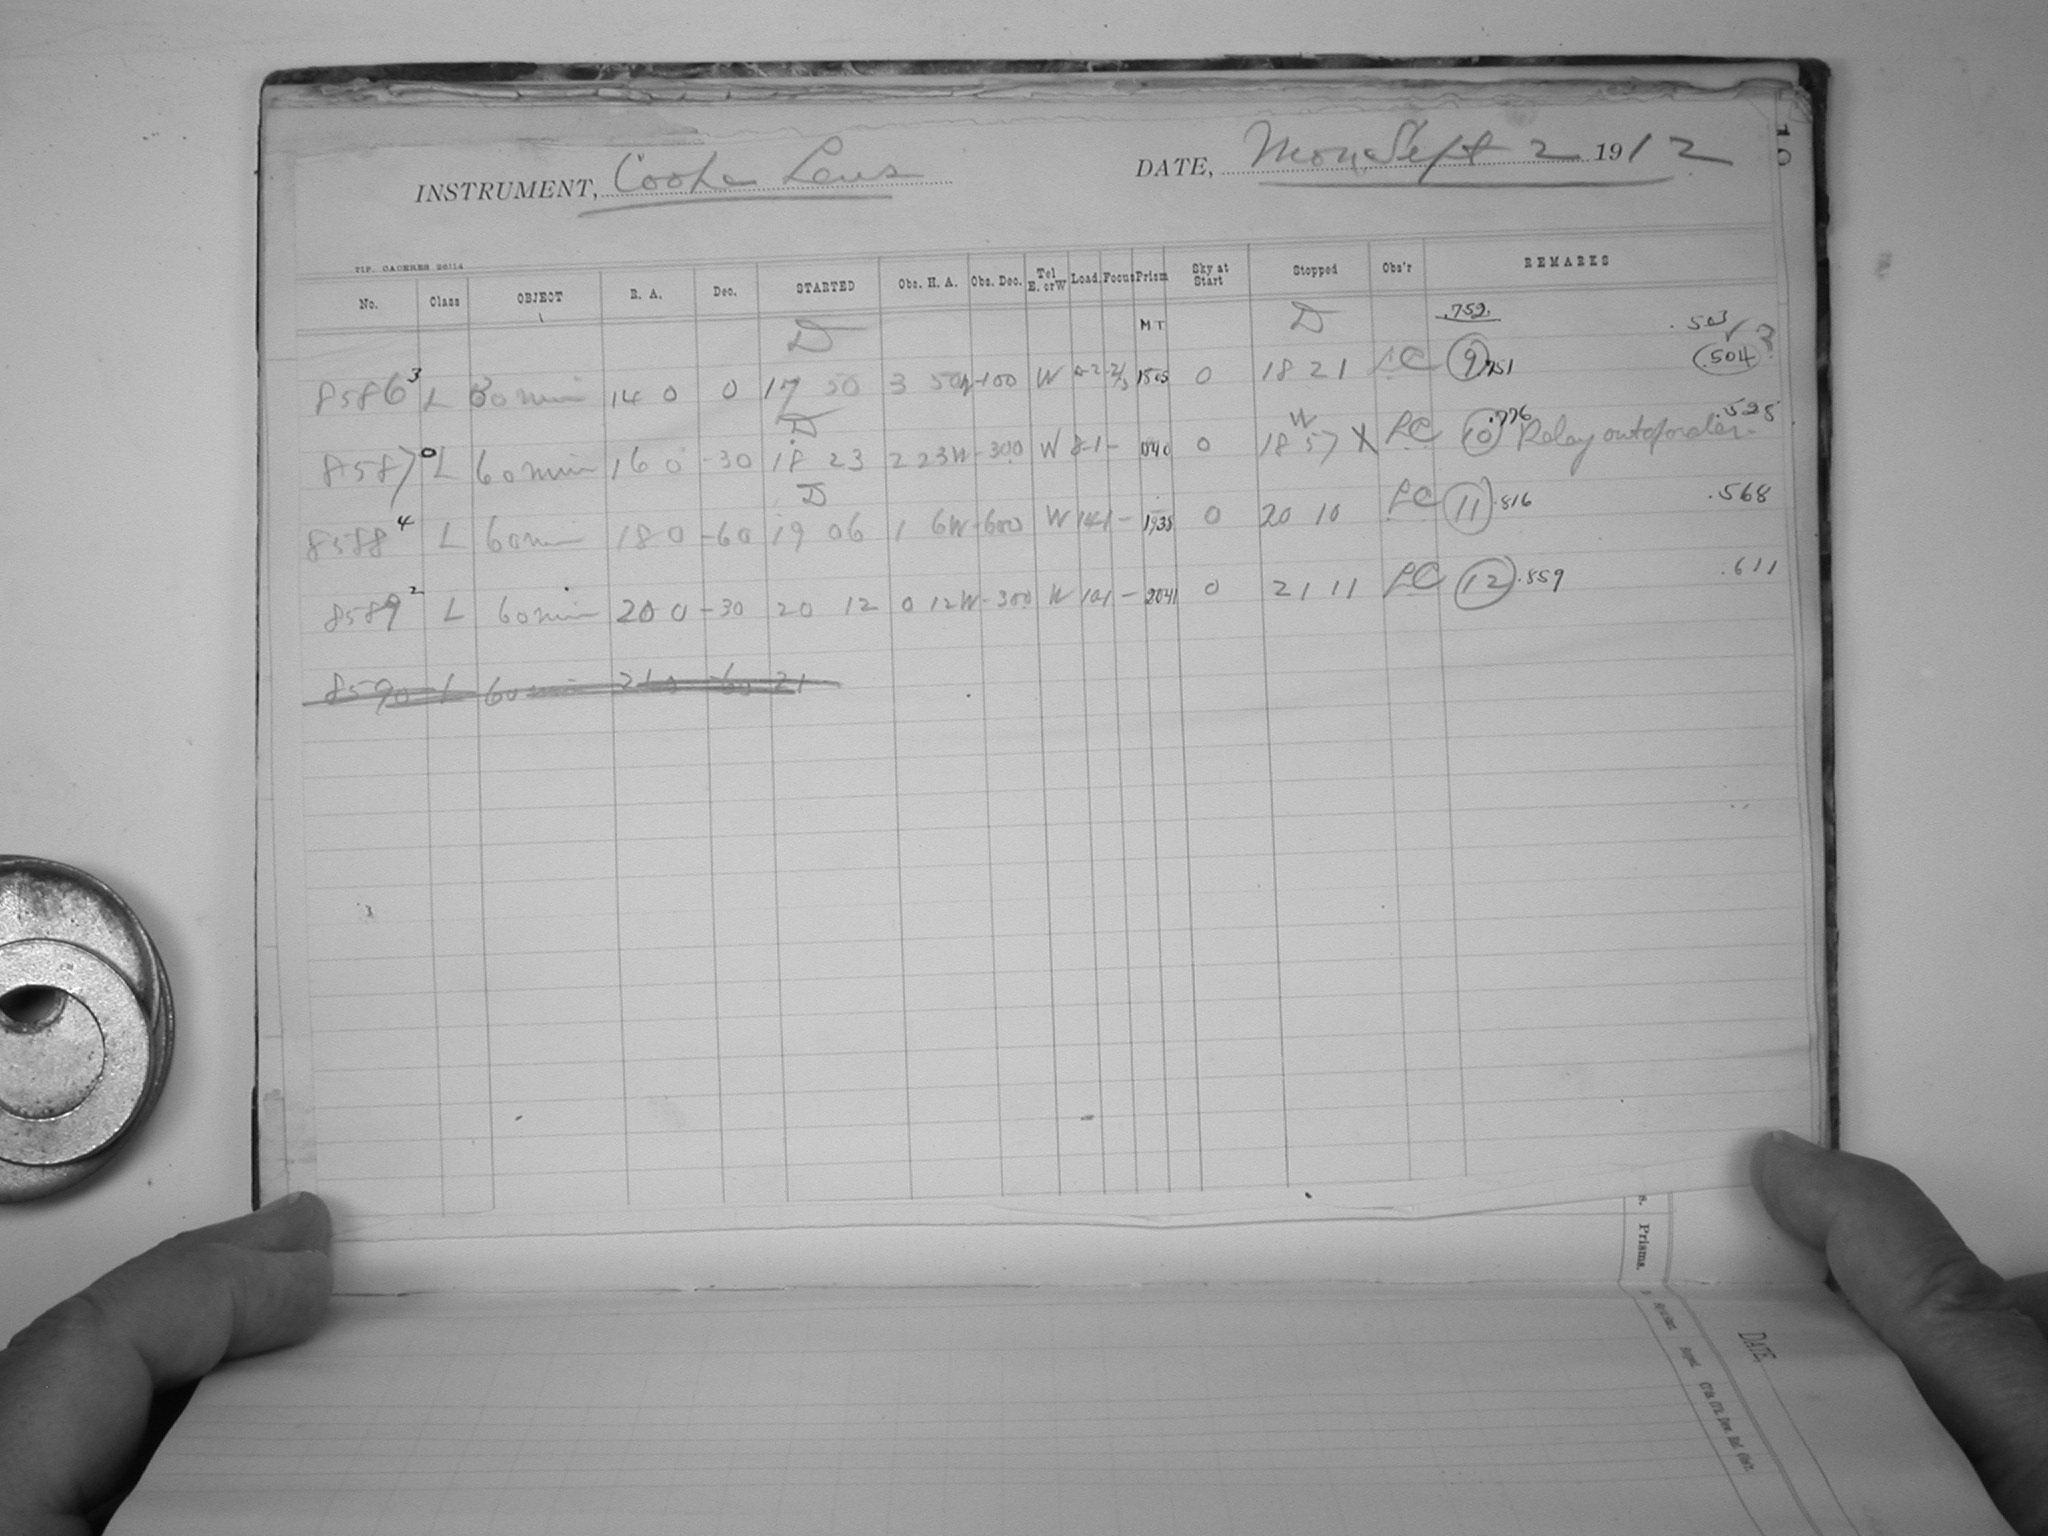 INSTRUMENT, Cooke Lens DATE, Mon, Sept 2 1912
10
TIP. CACERES 26114
No. Class OBJECT R. A. Dec. STARTED Obs. H. A. Obs. Dec. Tel E. or W Load. Focus Prism Sky at Start Stopped Obs'r REMARKS
D MT D .759. .503
8586 3 L 30 min 14 0 0 17 50 3 50W -100 W 1505 0 18 21 LC 9 .751 .504 ?
D W
8587 0 L 60 min 16 0 -30 18 23 2 23W -300 W 8-1 - 0 18 57 X LC 10 .776 Relay out of order .525
D
8588 4 L 60 min 18 0 -60 19 06 1 6W -600 W 14-1 - 1935 0 20 10 LC 11 .816 .568
8589 2 L 60 min 20 0 -30 20 12 0 12W -300 W 10-1 - 2041 0 21 11 LC 12 .859 .611
8590 L 60 min -60 21
s. Prisms.
DATE,